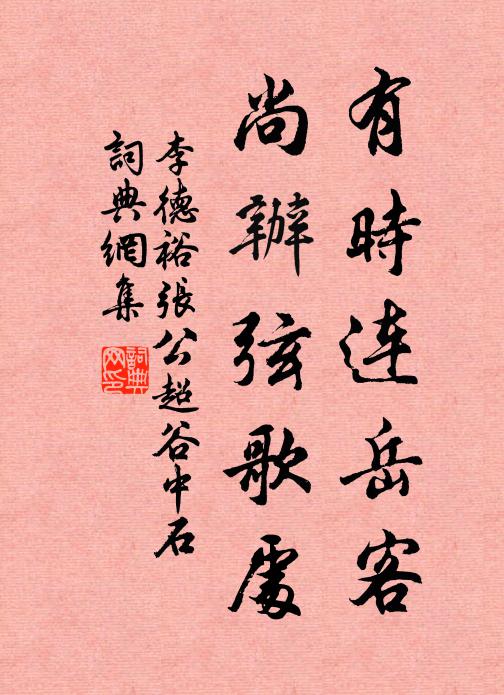 有時連岳客
尚辦弦歌處
李德裕張公超谷中石
詞典網集
詞典
网印